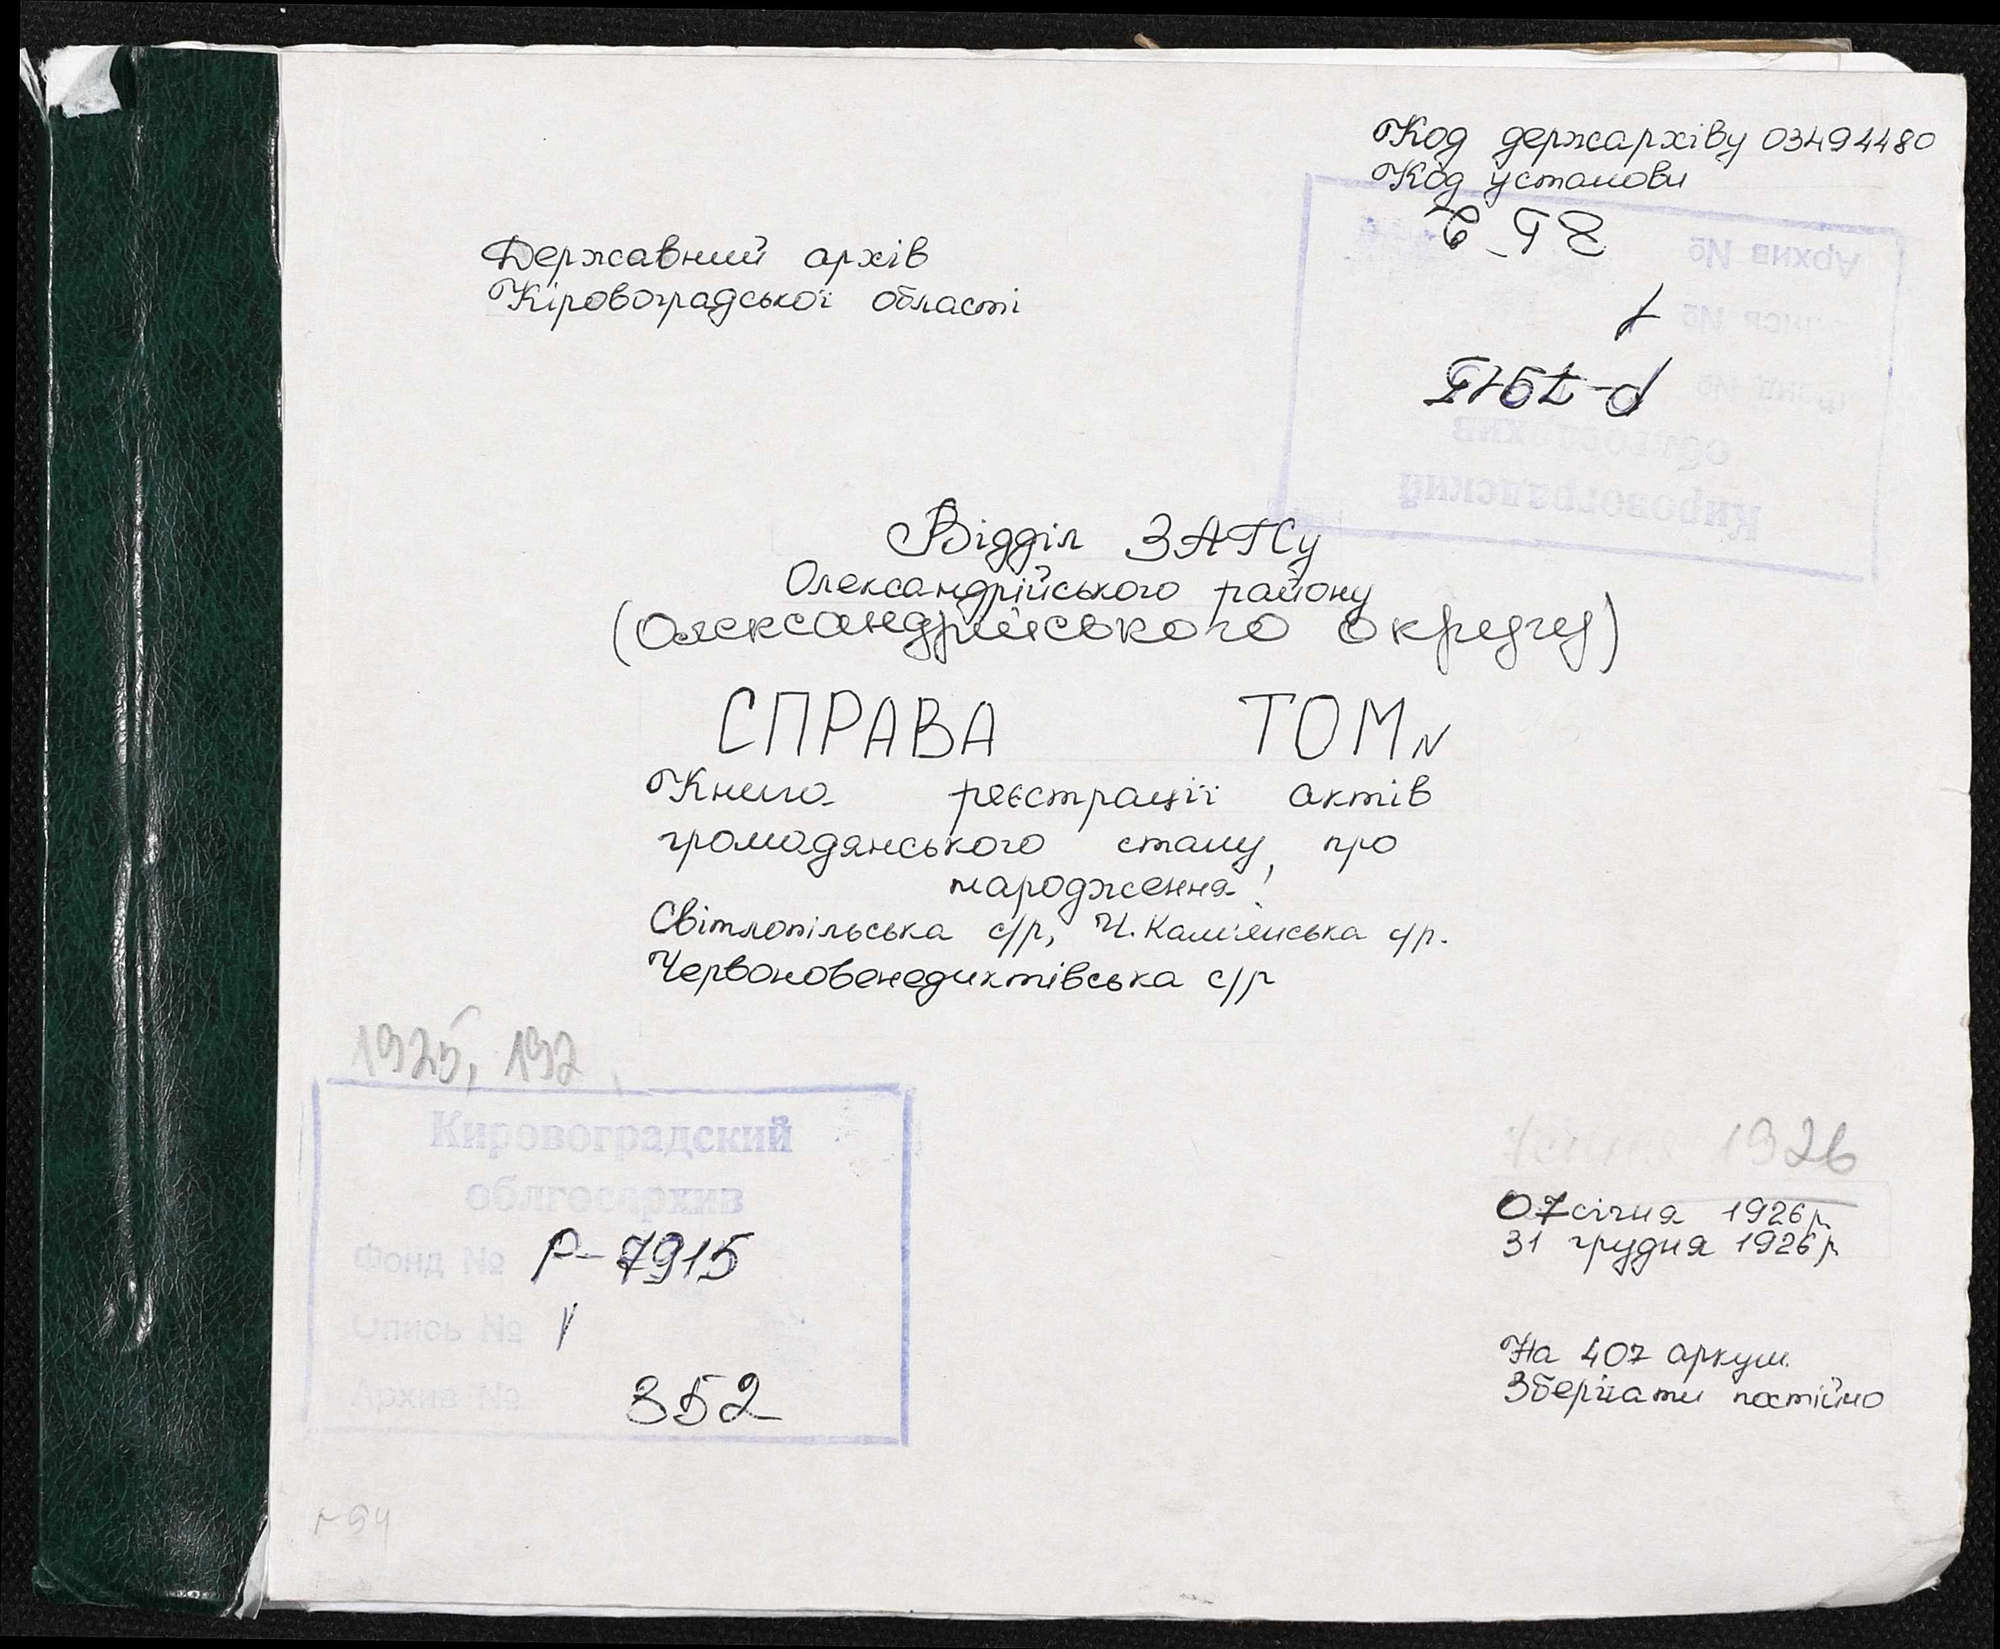 Код держархіву 03494480
Код установи
Державний архів
Кіровоградської області
Архив №
Р-7915
облгосархив
Кировоградский
Відділ ЗАГСу
Олександрійського району
(Олександрійського округу)
СПРАВА ТОМ N
Книга реєстрації актів
громадянського стану про
народження
Світлопільська с/р, Ч. Кам'янська с/р.
Червоновенедиктівська с/р
1925, 192
Кировоградский
облгосархив
Фонд № Р-7915
Опись № 1
Архив № 352
1926
07 січня 1926 р
31 грудня 1926 р
На 407 аркуш.
Зберігати постійно